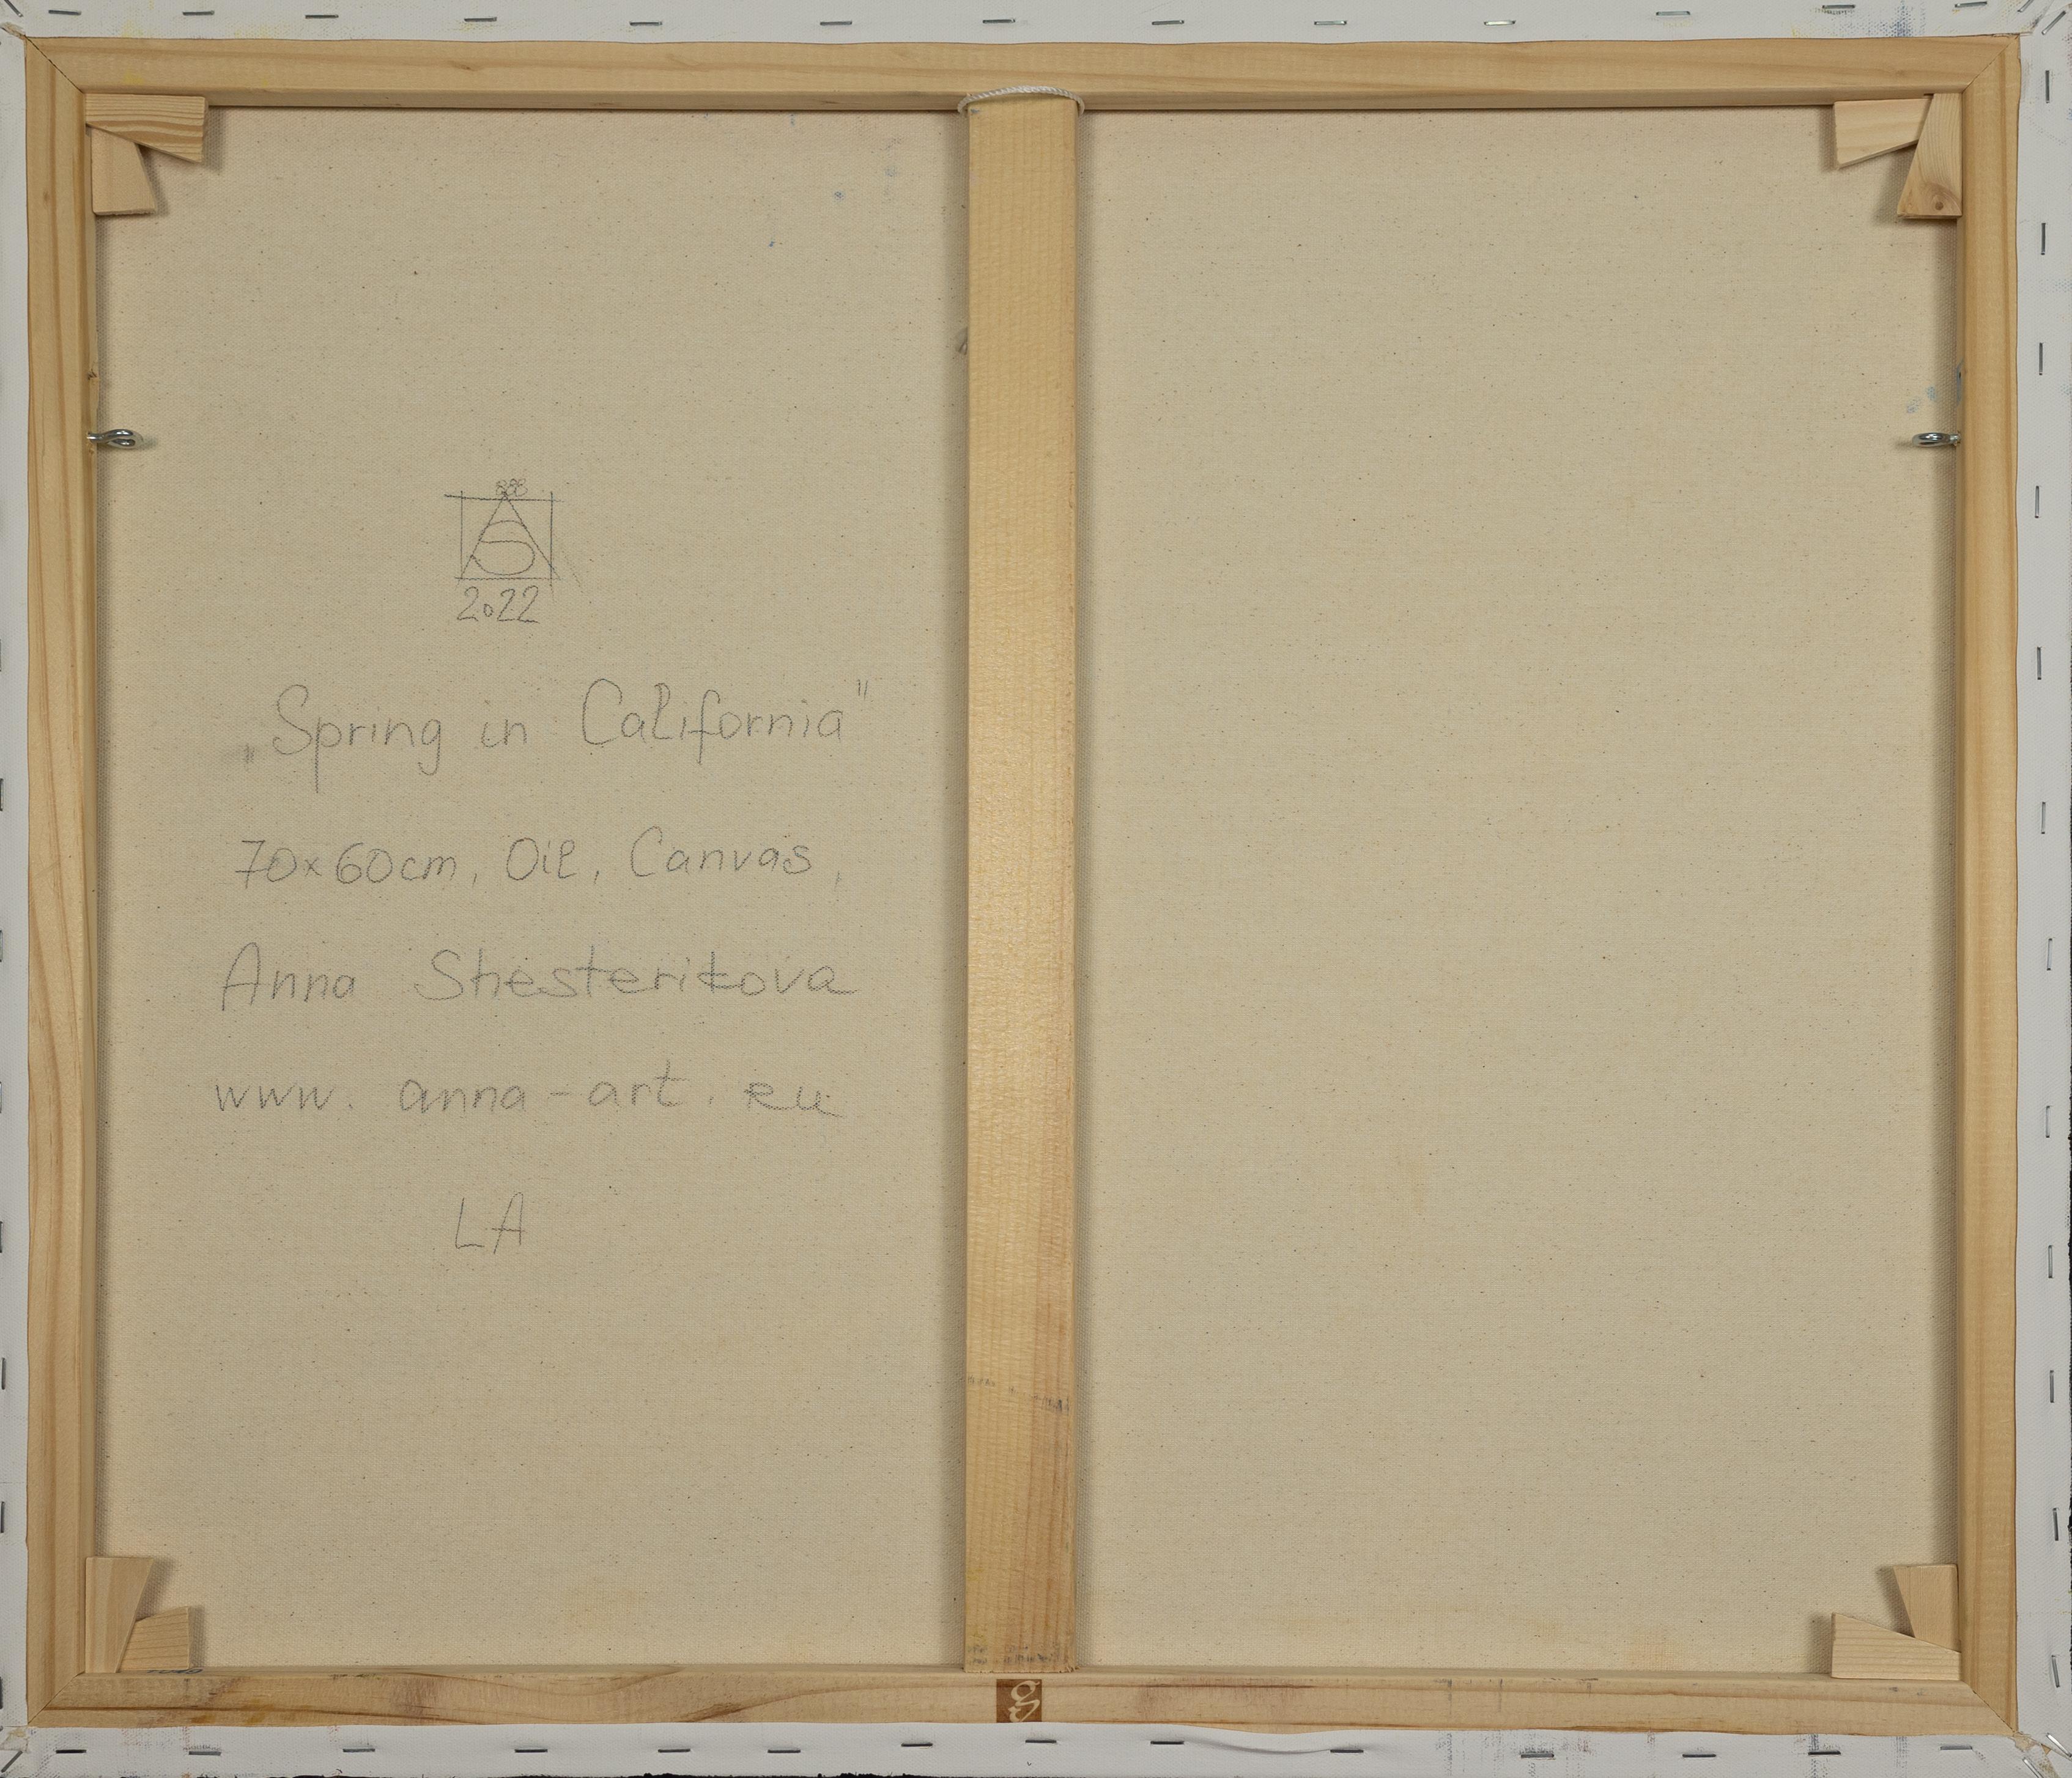 AS
2022
„Spring in California"
70x60cm, Oil, Canvas,
Anna Shesterikova
www. anna-art. ru
LA
g